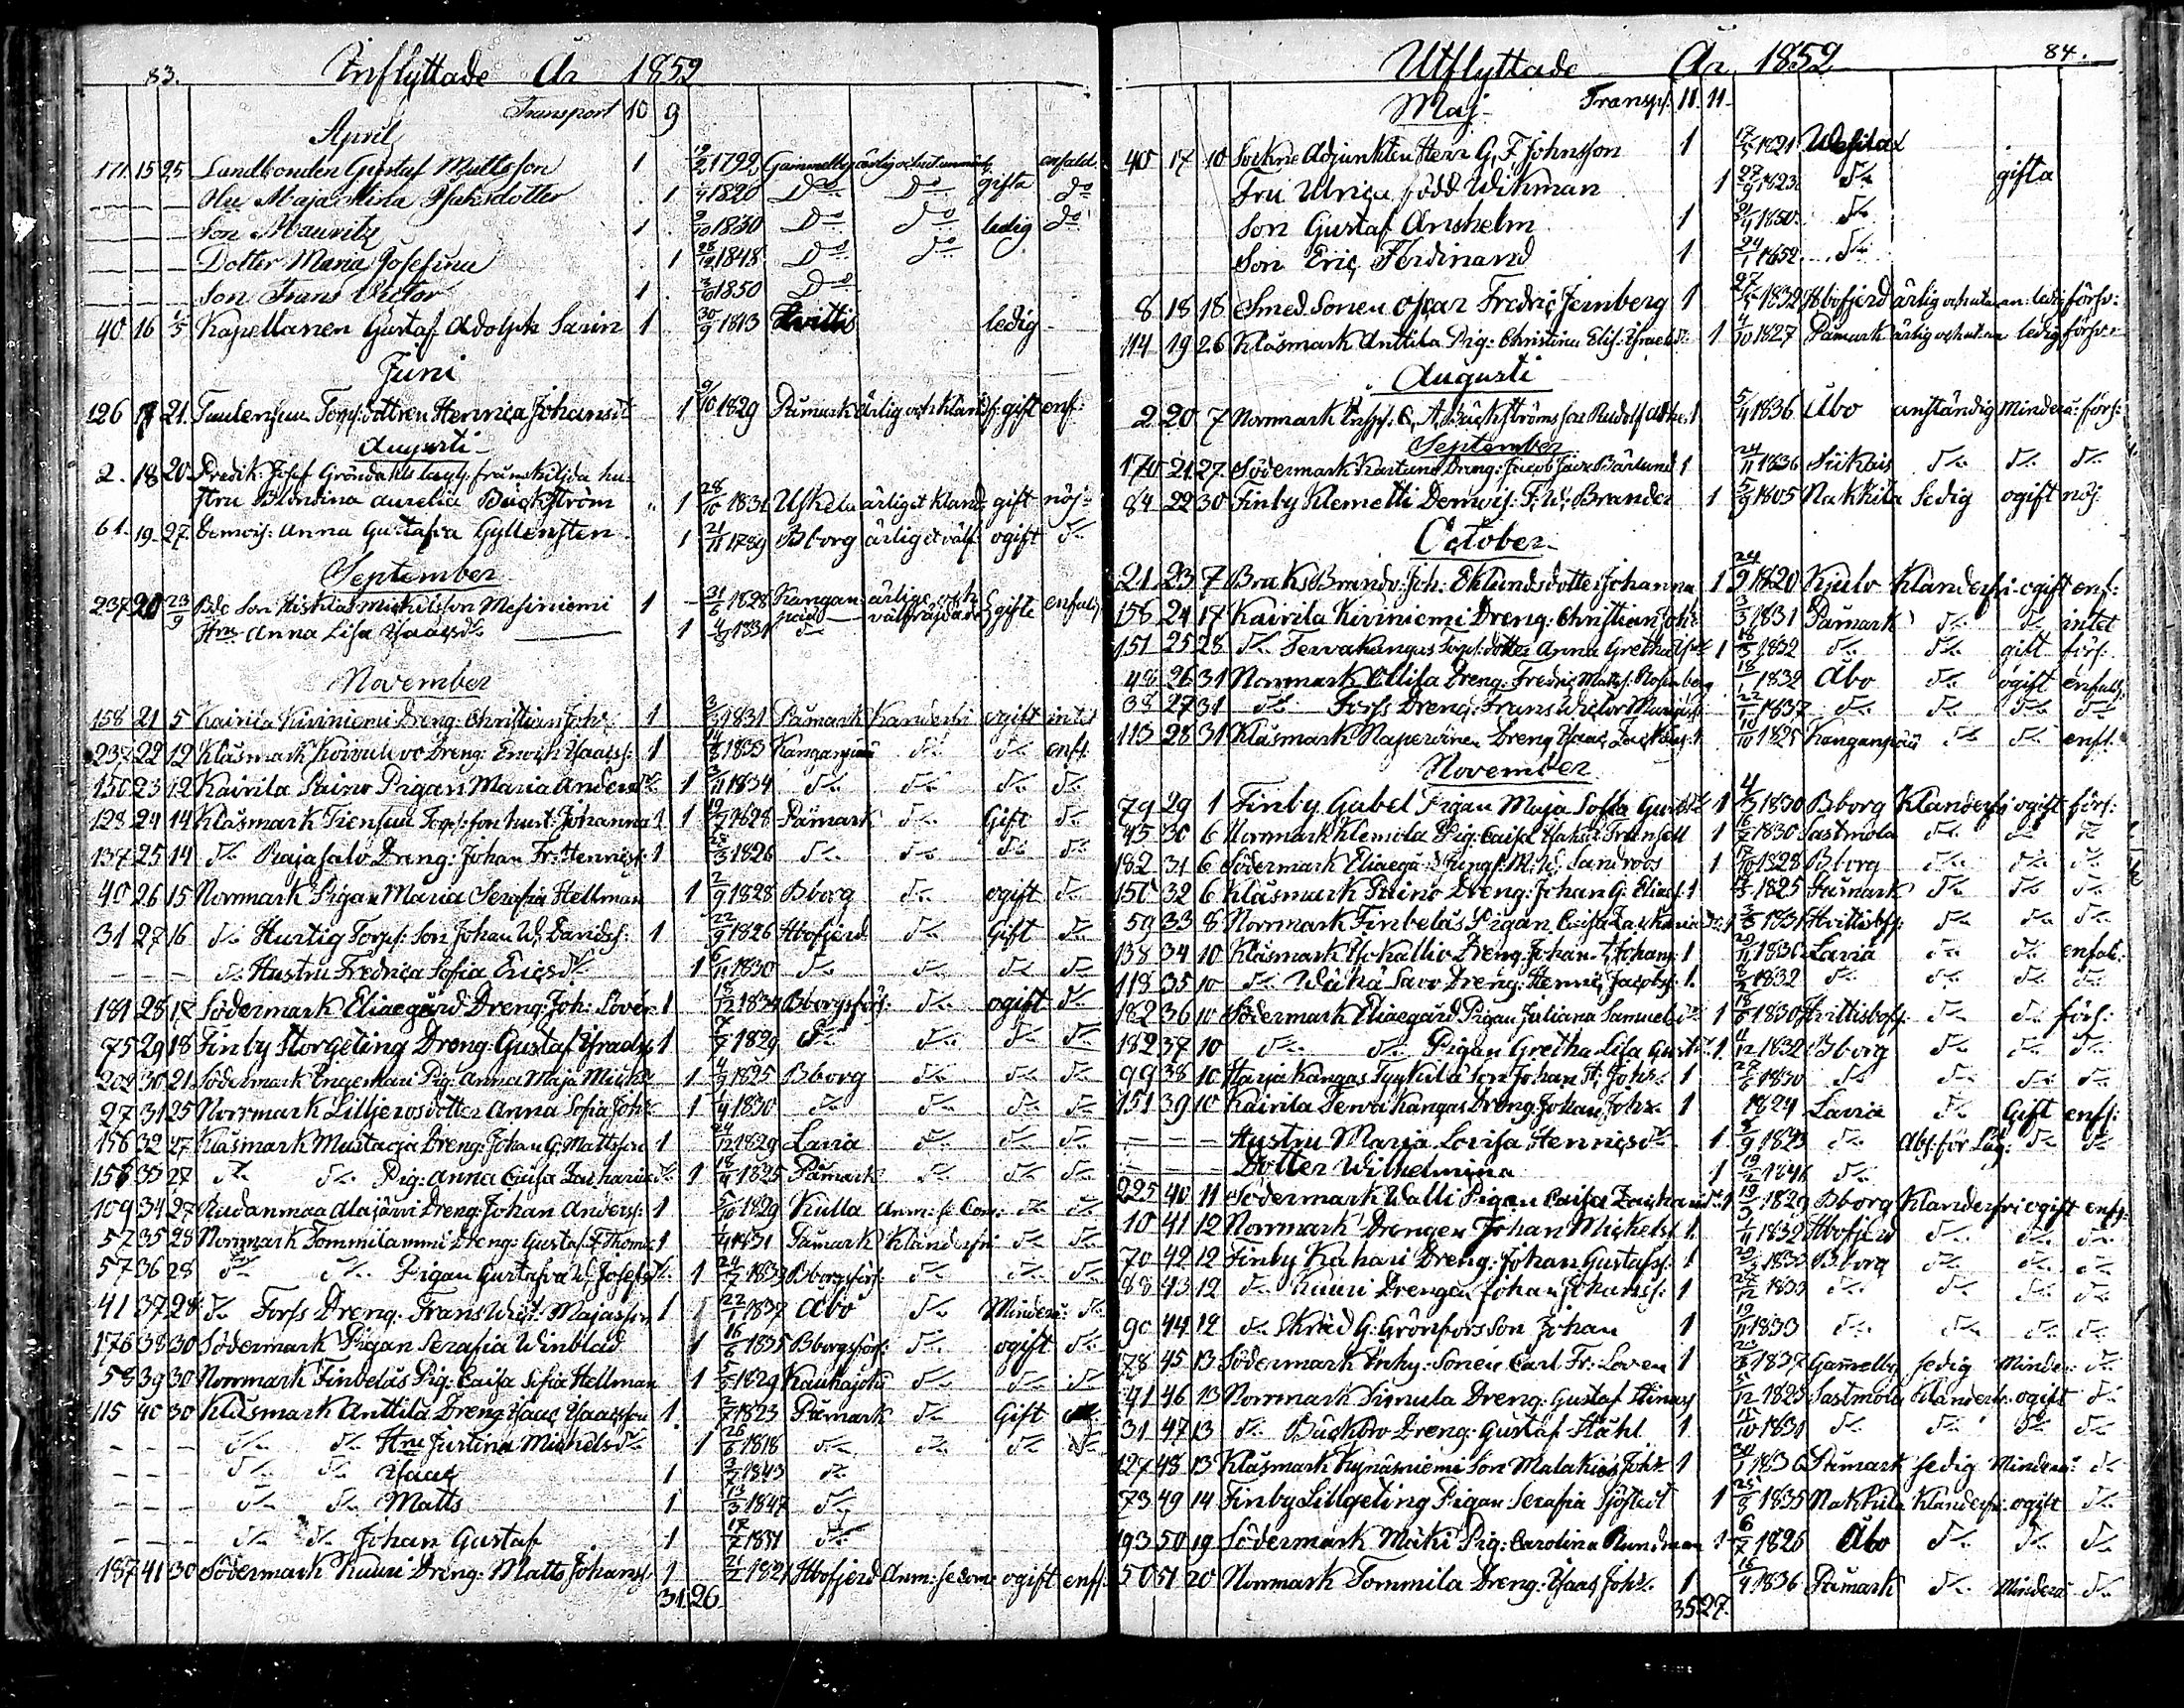 83. Inflyttade År 1852
Transport 10 9
April
171 15 25 Landbonden Gustaf Mattsson 1 1792 Gammelby enfald.
Hu Maja Stina Isaksdotter 1 1820 Do Do gifta do
Son Mauritz 1 9/10 1830 Do do ledig do
Dotter Maria Josefina 1 28/12 1848 Do do
Son Frans Victor 1 1850 Do
40 16 Kapellanen Gustaf Adolph Sarin 1 30/9 1813 Hvittis ledig
Juni
126 17 21. Hennica Johansdr 1 1829 Påmark ärlig och gift enf:
Augusti
2. 18 20 Predik: Josef Gröndahls lagl: frånskiljda hu-
stru Blondina Aurelia Bäckström 1 28/10 1831 Uskela ärlig et gift nöj:
61. 19 27 Demois: Anna Gustafva Gyllensten 1 21/11 1789 Bborg ärlig et ogift do
September
237 20 23/9 Bde Son Michelsson Mesiniemi 1 1828 Kangan- ärlige och gifte enfald
Hru Anna Lisa Isaacsdr 1 1831 do välfräjdade
November
158 21 5 Kairila Kiviniemi Dreng: Christian Johs: 1 3/3 1831 Påmark ogift intet
237 22 12 Klåsmark Dreng: Enoch Isaacss: 1 1833 Kanganpää do do enf:
150 23 12 Kairila Paino Pigan Maria Andersdr 1 1834 do do do do
128 24 14 Klåsmark Torp: son hust: Johanna 1 1 1828 Påmark do Gift do
137 25 14 do Rajasalo Dreng: Johan Fr: Hennicss: 1 1826 do do do do
40 26 15 Norrmark Pigan Maria Serafia Hellman 1 2/9 1828 Bborg do ogift do
31 27 16 do Hurtig Torps: Son Johan W: Davidss: 1 22/9 1826 Hbofjerd do Gift do
do Hustru Fredrica Sofia Ericsdr 1 6/11 1830 do do do do
181 28 17 Södermark Eliaegård Dreng: Joh: Lovén 1 18/12 1834 Bborgsförs: do ogift do
75 29 18 Finby Storgeting Dreng: Gustaf Israelss: 1 1829 do do do do
202 30 21 Södermark Engemari Pig: Anna Maja Michs: 1 4/9 1825 Bborg do do do
27 31 25 Norrmark Lilljeros dotter Anna Sofia Johs: 1 1830 do do do do
156 32 27 Klåsmark Mustaoja Dreng: Johan G: Mattsson 1 24/12 1829 Lavia do do do
156 33 27 do do Pig: Anna Caisa Zachariædr 1 1825 Påmark do do do
109 34 27 Rudanmaa Alajärvi Dreng: Johan Anderss: 1 5/10 1829 Kulla Anm: se Com: do do
57 35 28 Norrmark Tommila Dreng: Gustaf F: Thoms: 1 1831 Påmark Klanderfri do do
57 36 28 do do Pigan Gustafva W: Josefsdr 1 1833 Bborgsförs: do do do
41 37 28 do Forss Dreng: Frans Vict: Majasson 1 22/1 1837 Åbo do Minderå: do
176 38 30 Södermark Pigan Serafia Winblad 1 16/6 1835 Bborgsförs: do ogift do
58 39 30 Norrmark Finbelås Pig: Caisa Sofia Hellman 1 1829 Kauhajoki do do do
115 40 30 Klåsmark Anttila Dreng Isaac Isaacsson 1 1823 Påmark do Gift
do do Hru Justina Michelsdr 1 26/6 1818 do do do do
do do Isaac 1 3/7 1843 do
do do Matts 1 13/3 1847 do
do do Johan Gustaf 1 17/7 1851 do
187 41 30 Södermark Kuuri Dreng: Matts Johanss: 1 21/2 1821 Hbofjerd Anm: se Com: ogift enf:
31. 26
Utflyttade År 1852 84.
Maj Transp: 11. 11
40 17 10 Sockne Adjunkten Herr G. F. Johnsson 1 17/5 1821
Fru Ulrica född Wikman 1 27/9 1823 do gifta
Son Gustaf Anshelm 1 1850 do
Son Eric Ferdinand 1 24/1 1852 do
8 18 18 Smed Sonen Oscar Fredric Jernberg 1 27/5 1832 Hbofjerd ärlig och utan an: ledig försv:
114 19 26 Klåsmark Anttila Pig: Christina Elis: Israelsdr 1 4/10 1827 Påmark ärlig och utan ledig försv:
Augusti
2 20 7 Norrmark Insp: C. A. Bäckströms son Rudolf 1 5/4 1836 Åbo anständig Minderå: förs:
September
170 21 27 Södermark Dreng: Jacob Bärlund 1 24/11 1836 Siikais do do do
84 22 30 Finby Klemetti Demois: F. W: Brander 1 5/9 1805 Nakkila ledig ogift nöj
October
21 23 7 Bruks Joh: Eklunds dotter Johanna 1 24/9 1820 Kjulo Klanderfri ogift enf:
158 24 17 Kairila Kiviniemi Dreng: Christian Johs: 3/3 1831 Påmark do do intet
151 25 28 do Tervakangas Torps: dotter Anna Gretha 1 1832 do do gift förs:
48 26 31 Norrmark Ollila Dreng: Fredric Matts: Rosenberg 1832 Åbo do ogift enfald:
38 27 31 do Forss Dreng: Frans Victor Majass: 22/1 1837 do do do do
113 28 31 Klåsmark Dreng Isaac 1 1825 Kanganpää do do enf:
November
79 29 1 Finby Gabel Pigan Maja Sofia Gustdr 1 1830 Bborg Klanderfri ogift förs:
45 30 6 Norrmark Klemola Pig: Caisa 1 1830 Sastmola do do do
182 31 6 Södermark Eliaegå: Jungf: M. W. Sandroos 1 17/10 1828 Bborg do do do
150 32 6 Klåsmark Paino Dreng: Johan G: Eliass: 1 1825 Påmark do do do
59 33 8 Norrmark Finbelås Pigan Caisa Zachariædr 1 1831 Hvittisbofj: do do do
138 34 10 Klåsmark Isokallio Dreng: Johan Johans: 1 1836 Lavia do do enfal:
118 35 10 do Wähä Savo Dreng: Hennic Jacobss: 1 1832 do do do do
182 36 10 Södermark Eliaegård Pigan Juliana Samuelsdr 1 1830 Hvittisbofj: do do förs:
182 37 10 do do Pigan Gretha Lisa Gustdr 1 4/12 1832 Bborg do do do
99 38 10 Harjakangas Son Johan H: Johs: 1 1830 do do do do
151 39 10 Kairila Tervakangas Dreng: Johan Johs: 1 1824 Lavia do Gift enf:
Hustru Maria Lovisa Hennicsdr 1 1823 do Abs: för do do
Dotter Wilhelmina 1 1846 do
225 40 11 Södermark Walli Pigan Caisa Zachariædr 1 1829 Bborg Klanderfri ogift enf:
10 41 12 Norrmark Drengen Johan Michelss: 1 9/11 1832 Hbofjerd do do do
70 42 12 Finby Kahari Dreng: Johan Gustafss: 1 1833 Bborg do do do
88 43 12 do Kuuri Drengen Johan Johanss: 1 1833 do do do do
90 44 12 do Skräd: G: Grönfors Son Johan 1 19/11 1833 do do do do
178 45 13 Södermark Inhy: Sonen Carl Fr: Loven 1 1837 Gamelby ledig Minder: do
41 46 13 Norrmark Simula Dreng: Gustaf 1 1825 Sastmola Klanderfr: ogift do
31 47 13 do Backbro Dreng: Gustaf Ståhl 1 1831 do do do do
127 48 13 Klåsmark Kynäsniemi Son Malakias Johs: 1 1836 Påmark ledig Minderå: do
73 49 14 Finby Lillgeting Pigan Serafia Sjöstedt 1 25/8 1835 Nakkila Klanderfr: ogift do
193 50 19 Södermark Mäki Pig: Carolina Rundman 1 6/7 1826 Åbo do do do
50 51 20 Norrmark Tommila Dreng: Isaac Johs: 1 16/4 1836 Påmark do Minderå: do
35 27